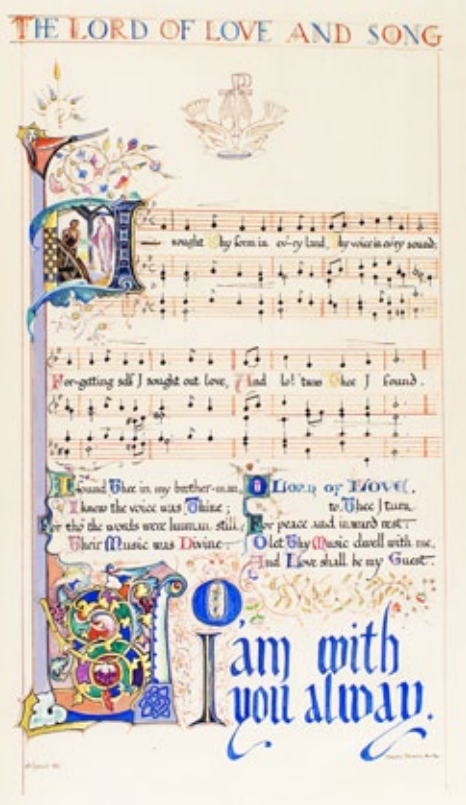 THE LORD OF LOVE AND SONG
I sought Thy form in ev'ry land, Thy voice in ev'ry sound;
For-getting self I sought out love, And lo! 'twas Thee I found.
I found Thee in my brother-man,
I knew the voice was Thine;
For tho' the words were human still,
Their Music was Divine.
O LORD OF LOVE,
to Thee I turn,
For peace and inward rest.
O let Thy Music dwell with me,
And Love shall be my Guest.
LO, I am with
you alway.